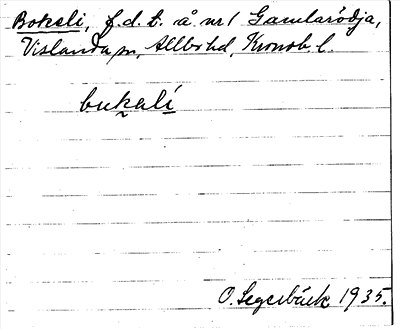 Bokeli, f.d.t. å nr 1 Gamlarödja,
Vislanda sn, Allbo hd, Kronob. l.
bukalí
O. Segerbäck 1935.